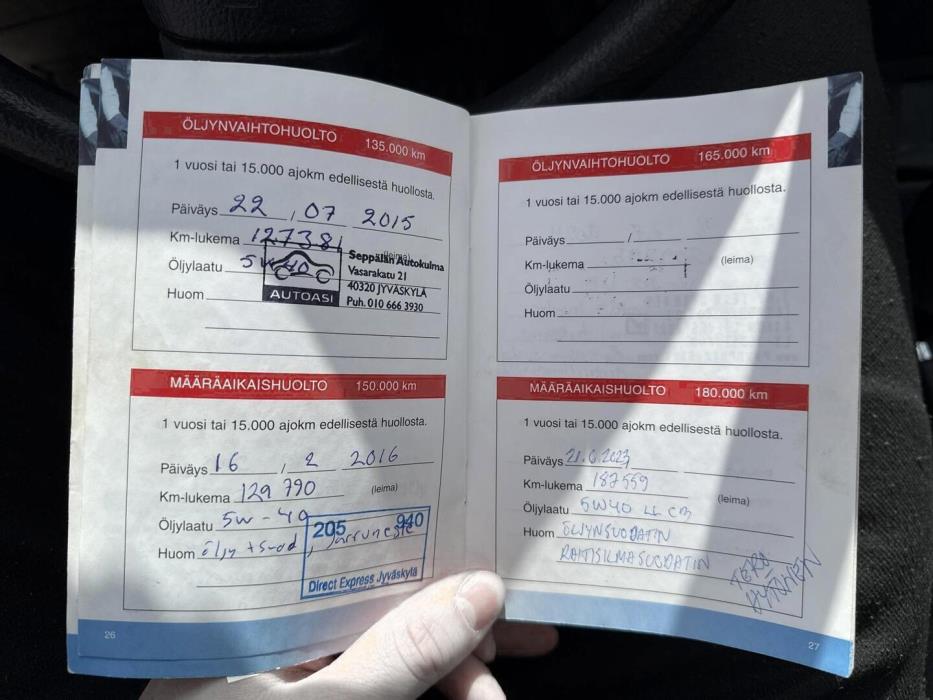 ÖLJYNVAIHTOHUOLTO 135.000 km
1 vuosi tai 15.000 ajokm edellisestä huollosta.
Päiväys 22 / 07 2015
Km-lukema 127381 (leima)
Öljylaatu 5w-40
Huom
AUTOASI
Seppälän Autokulma
Vasarakatu 21
40320 JYVÄSKYLÄ
Puh. 010 666 3930
MÄÄRÄAIKAISHUOLTO 150.000 km
1 vuosi tai 15.000 ajokm edellisestä huollosta.
Päiväys 16 / 2 2016
Km-lukema 129 790 (leima)
Öljylaatu 5w-40
Huom öljy + suod, Jarruneste
205 940
Direct Express Jyväskylä
26
ÖLJYNVAIHTOHUOLTO 165.000 km
1 vuosi tai 15.000 ajokm edellisestä huollosta.
Päiväys /
Km-lukema (leima)
Öljylaatu
Huom
MÄÄRÄAIKAISHUOLTO 180.000 km
1 vuosi tai 15.000 ajokm edellisestä huollosta.
Päiväys 21.6.2023
Km-lukema 187559 (leima)
Öljylaatu 5W40 LL
Huom ÖLJYNSUODATIN
RAITISILMASUODATIN
TERO
27